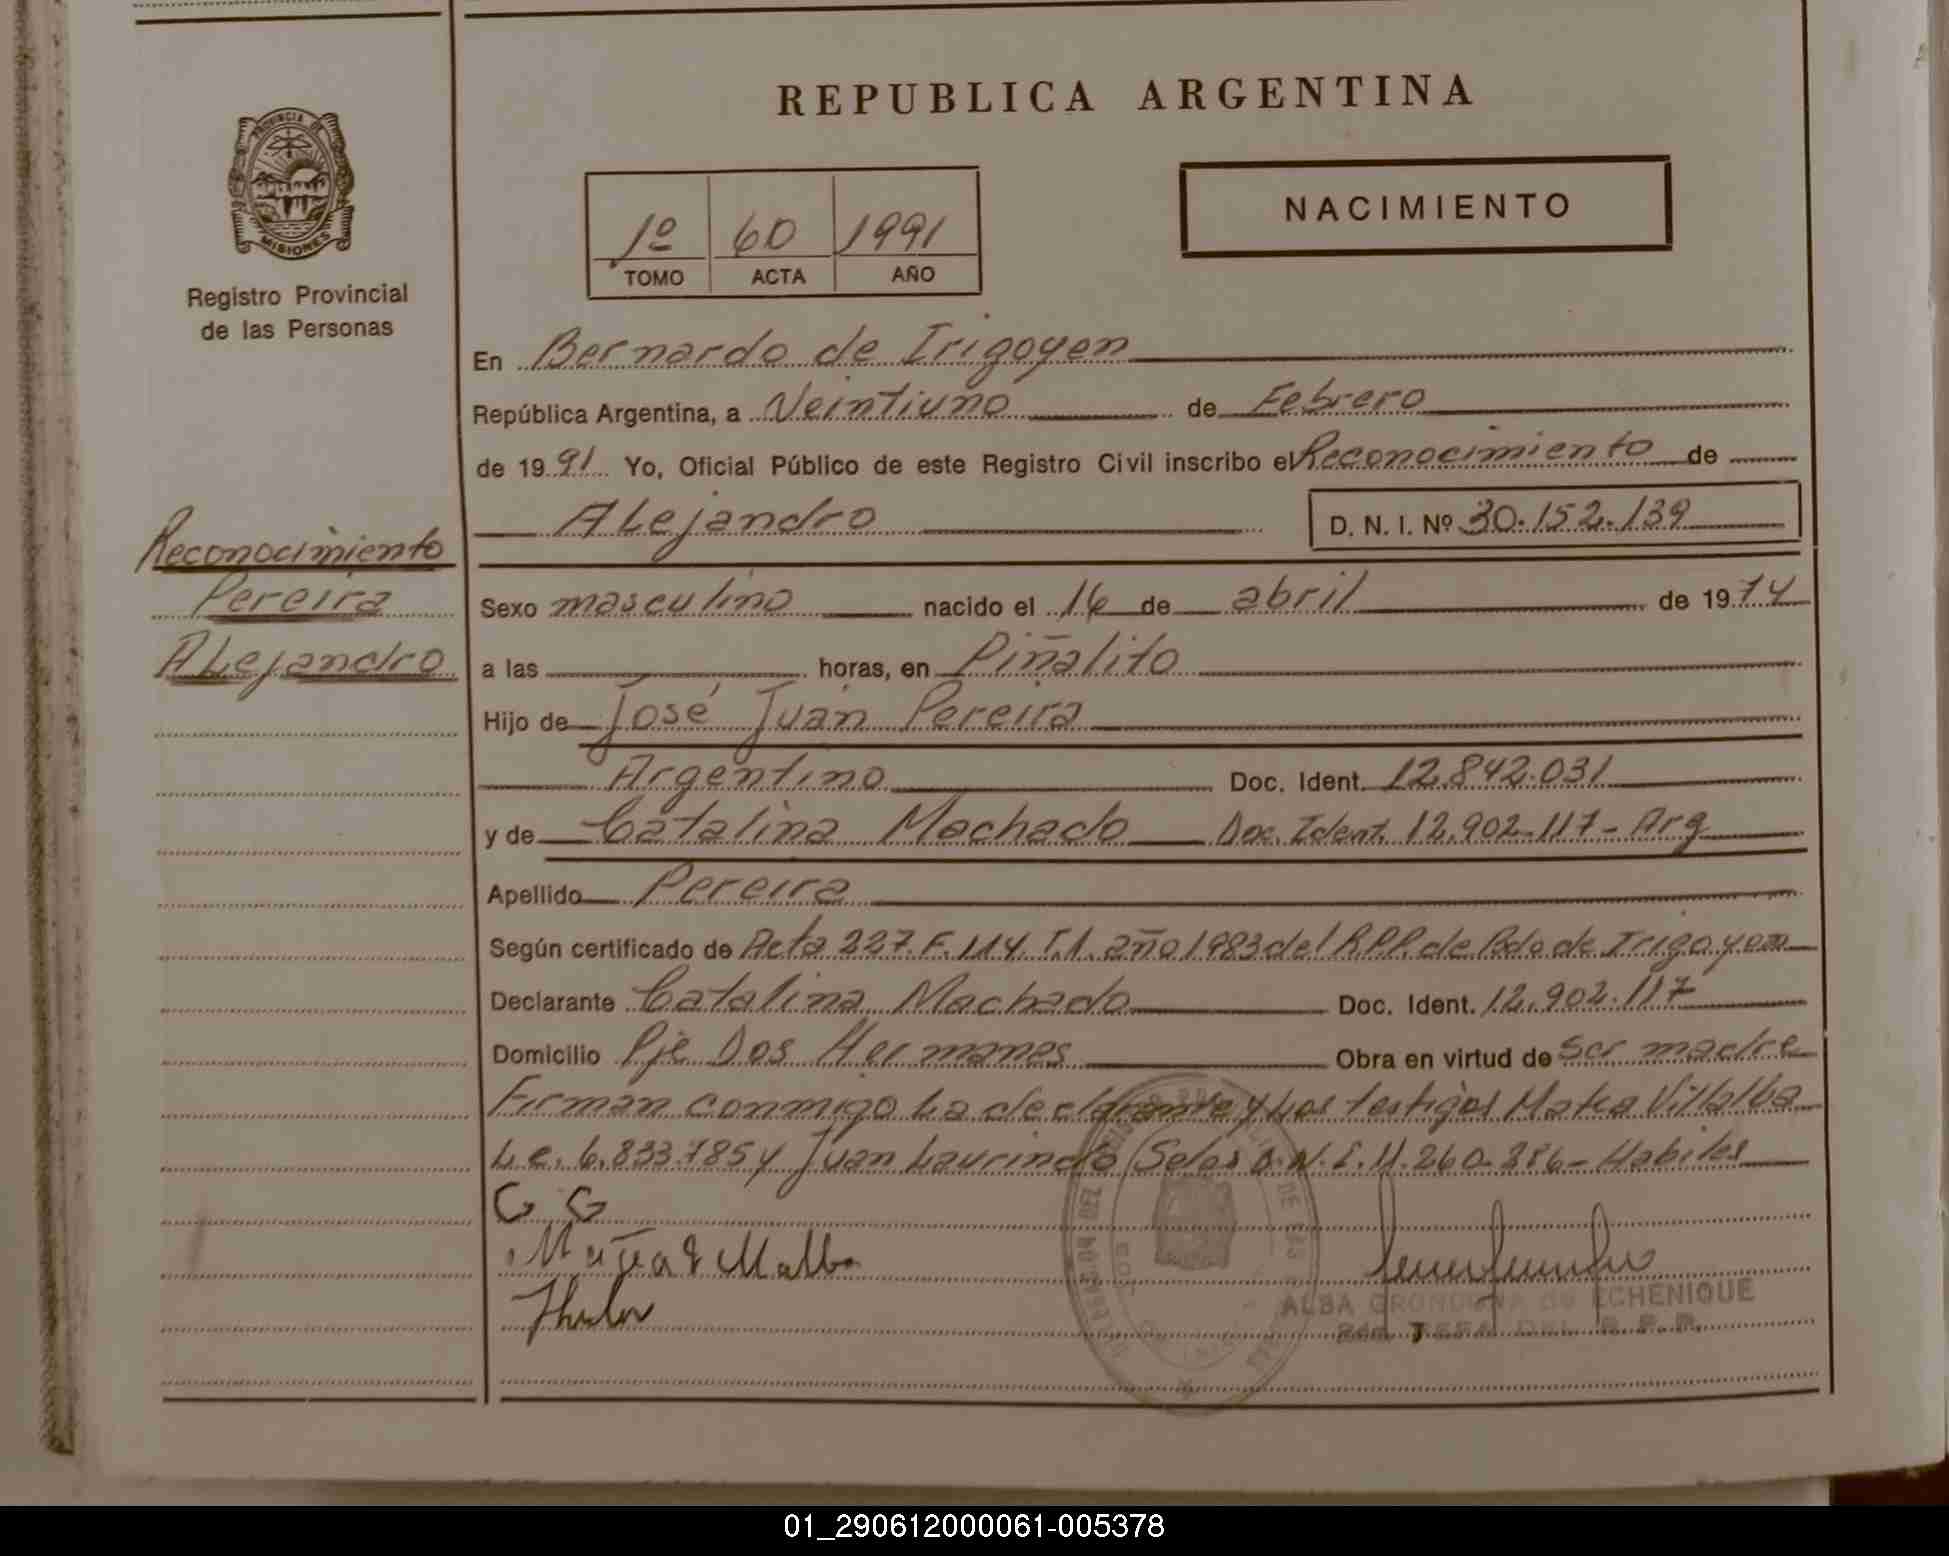 REPUBLICA ARGENTINA
PROVINCIA DE
MISIONES
Registro Provincial
de las Personas
1º 60 1991
TOMO ACTA AÑO
NACIMIENTO
En Bernardo de Irigoyen
República Argentina, a Veintiuno de Febrero
de 1991 Yo, Oficial Público de este Registro Civil inscribo el Reconocimiento de
ALejandro D. N. I. Nº 30.152.139
Reconocimiento
Pereira
ALejandro
Sexo masculino nacido el 16 de abril de 1974
a las horas, en Piñalito
Hijo de José Juan Pereira
Argentino Doc. Ident. 12.842.031
y de Catalina Machado Doc. Ident. 12.902.117 - Arg
Apellido Pereira
Según certificado de Acta 227. F. 114. T.1. año 1983 del R.P.P. de Bdo de Irigoyen
Declarante Catalina Machado Doc. Ident. 12.902.117
Domicilio Pje Dos Hermanas Obra en virtud de ser madre
Firman conmigo La declarante y Los testigos Villalba
L.e. 6.833.785 y Juan Laurindo D.N.I. 11.260.386 - Habiles
ALBA GRONDONA de ECHENIQUE
DEL R.P.P.
01_290612000061-005378